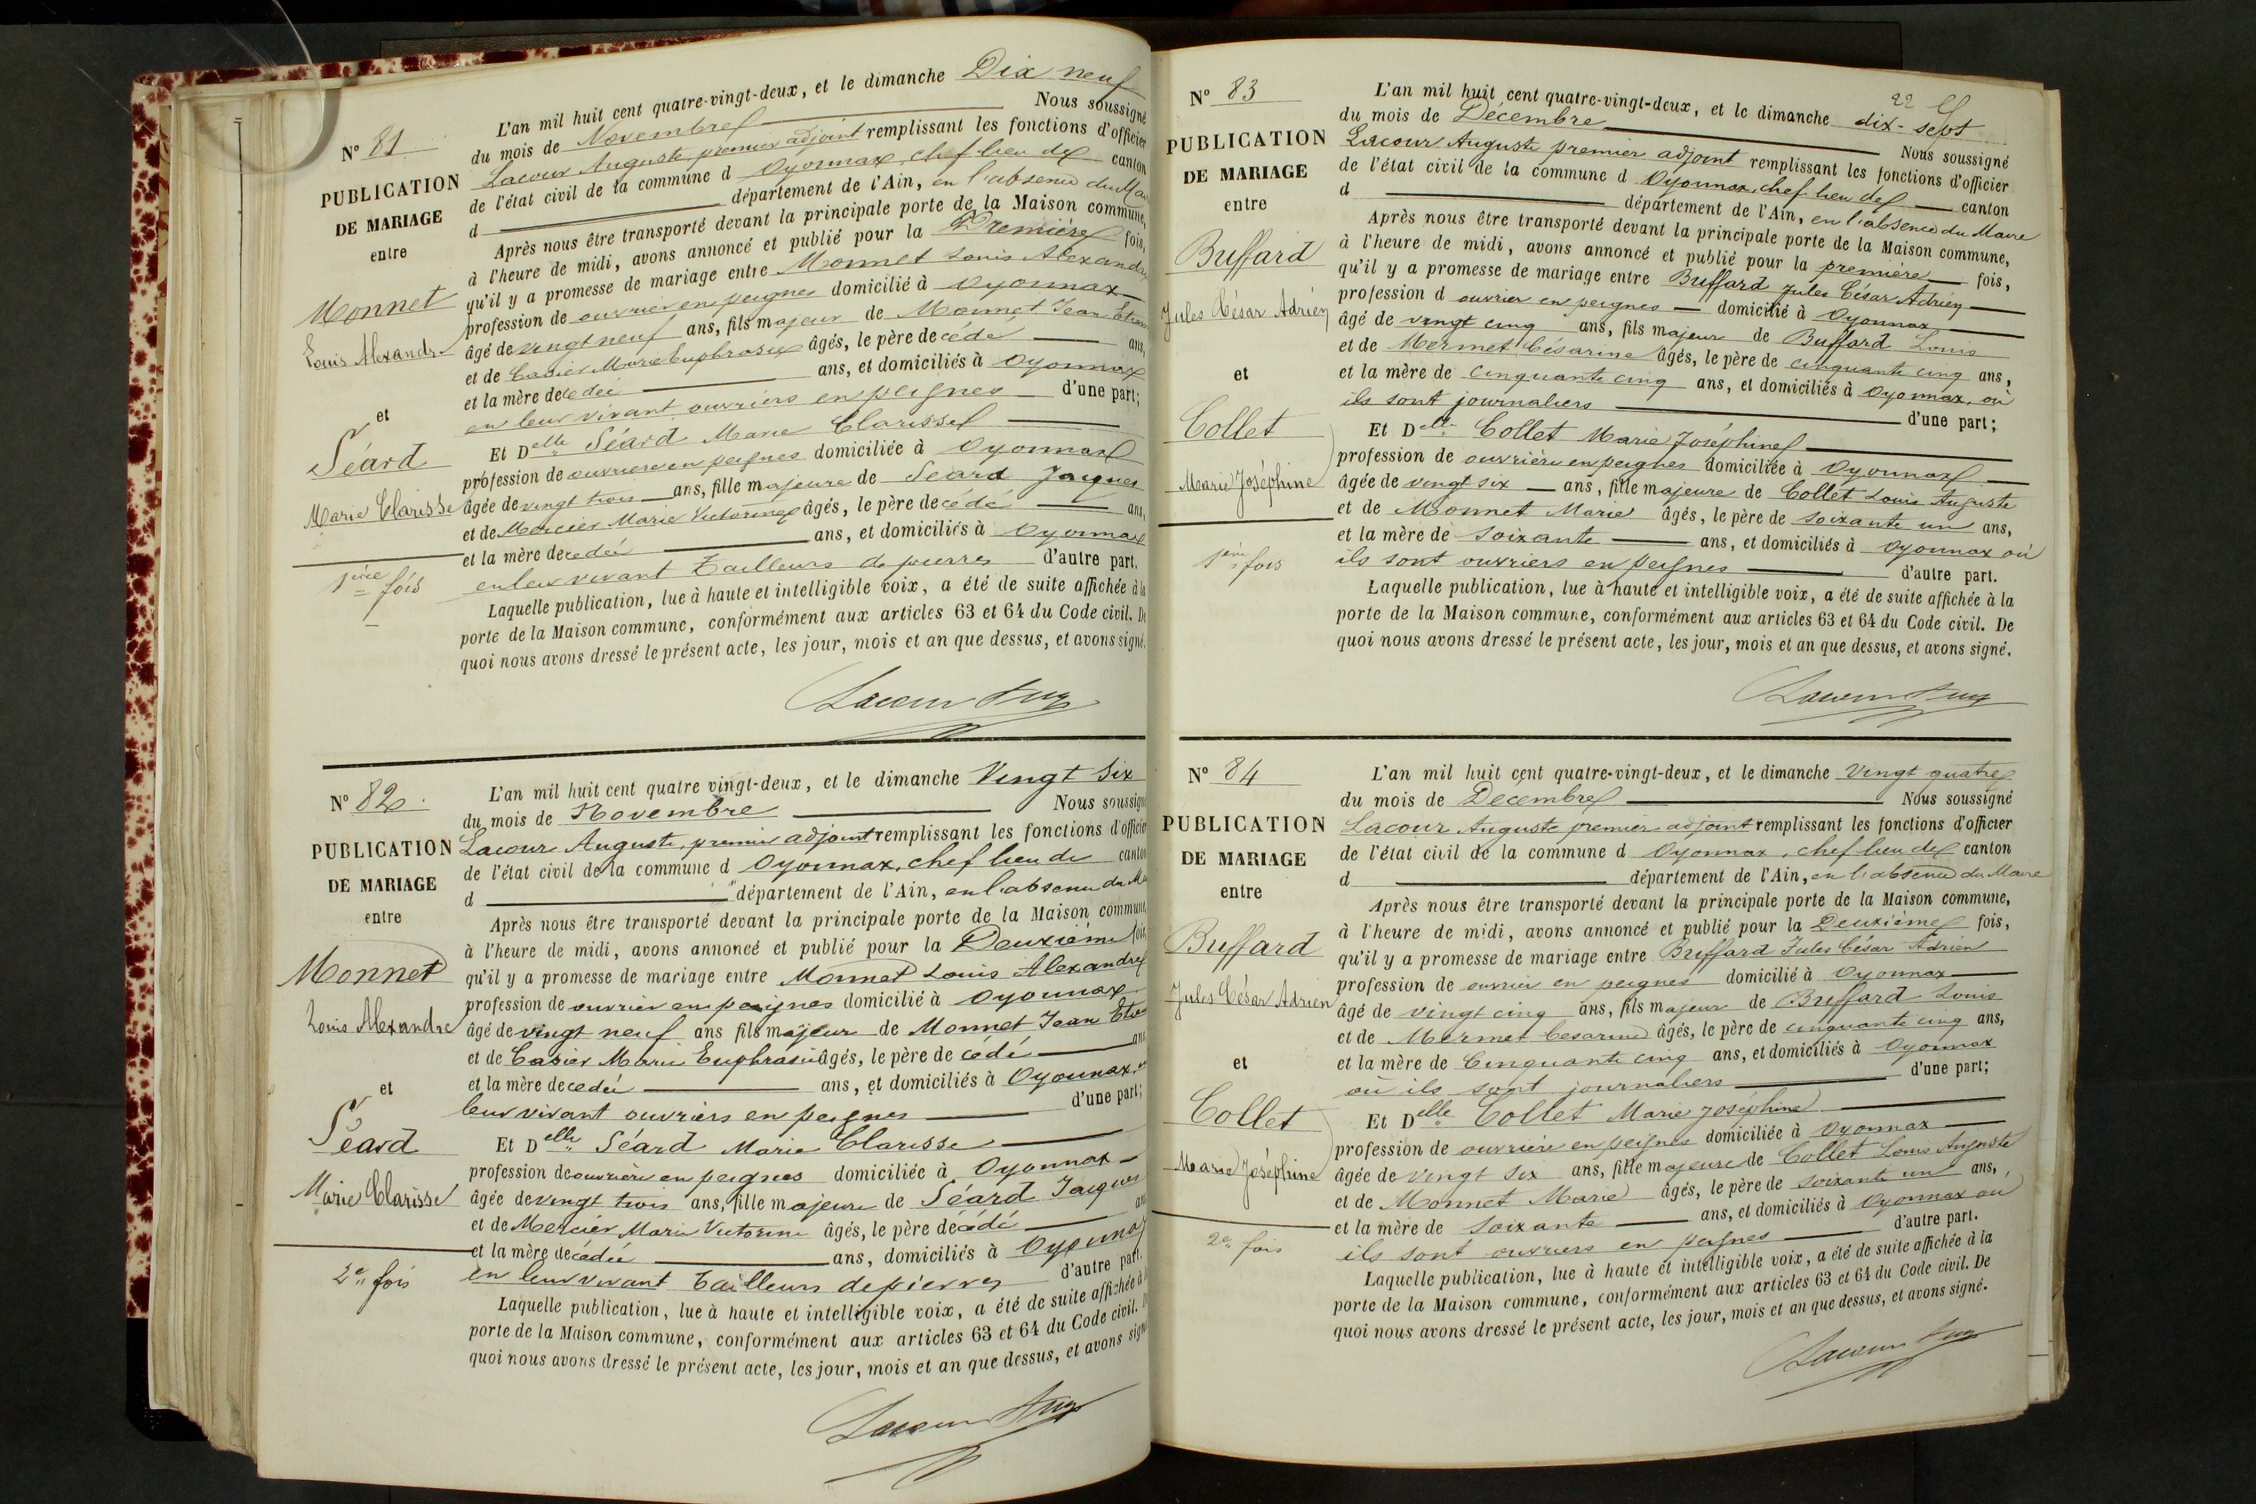 N° 81
PUBLICATION
DE MARIAGE
entre
Monnet
Louis Alexandre
et
Séard
Marie Clarisse
1ère fois
L'an mil huit cent quatre-vingt-deux, et le dimanche Dix neuf
du mois de Novembre Nous soussigné
Lacour Auguste premier adjoint remplissant les fonctions d'officier
de l'état civil de la commune d Oyonnax, chef lieu de canton
d département de l'Ain, en l'absence du
Après nous être transporté devant la principale porte de la Maison commune,
à l'heure de midi, avons annoncé et publié pour la Première fois,
qu'il y a promesse de mariage entre Monnet Louis Alexandre
profession de ouvrier en peignes domicilié à Oyonnax
âgé de vingt neuf ans, fils majeur de Monnet Jean
et de Marie Euphrasie âgés, le père decédé ans,
et la mère decedeé ans, et domiciliés à Oyonnax
en leur vivant ouvriers en peignes d'une part;
Et Delle Séard Marie Clarisse
profession de ouvriere en peignes domiciliée à Oyonnax
âgée de vingt trois ans, fille majeure de Séard Jacques
et de Mercier Marie Victorine âgés, le père decédé ans,
et la mère decedeé ans, et domiciliés à Oyonnax
en leur vivant Tailleurs de pierres d'autre part.
Laquelle publication, lue à haute et intelligible voix, a été de suite affichée à la
porte de la Maison commune, conformément aux articles 63 et 64 du Code civil. De
quoi nous avons dressé le présent acte, les jour, mois et an que dessus, et avons signé.
Lacour Aug
N° 82
PUBLICATION
DE MARIAGE
entre
Monnet
Louis Alexandre
et
Séard
Marie Clarisse
2e fois
L'an mil huit cent quatre vingt-deux, et le dimanche Vingt Six
du mois de Novembre Nous soussigné
Lacour Auguste, premier adjoint remplissant les fonctions d'officier
de l'état civil de la commune d Oyonnax, chef lieu de canton
d département de l'Ain, en l'absence du
Après nous être transporté devant la principale porte de la Maison commune,
à l'heure de midi, avons annoncé et publié pour la Deuxième fois,
qu'il y a promesse de mariage entre Monnet Louis Alexandre
profession de ouvrier en peignes domicilié à Oyonnax
âgé de vingt neuf ans fils majeur de Monnet Jean
et de Marie Euphrasie âgés, le père de cédé ans
et la mère decedeé ans, et domiciliés à Oyonnax,
leur vivant ouvriers en peignes d'une part;
Et Delle Séard Marie Clarisse
profession de ouvrière en peignes domiciliée à Oyonnax
âgée de vingt trois ans, fille majeure de Séard Jacques
et de Mercier Marie Victorine âgés, le père décédé ans
et la mère decédeé ans, domiciliés à Oyonnax
en leur vivant Tailleurs de pierres d'autre part.
Laquelle publication, lue à haute et intelligible voix, a été de suite affichée à
porte de la Maison commune, conformément aux articles 63 et 64 du Code civil.
quoi nous avons dressé le présent acte, les jour, mois et an que dessus, et avons signé
Lacour Aug
N° 83
PUBLICATION
DE MARIAGE
entre
Buffard
Jules César Adrien
et
Collet
Marie Joséphine
1ère fois
22
L'an mil huit cent quatre-vingt-deux, et le dimanche dix-sept
du mois de Décembre Nous soussigné
Lacour Auguste premier adjoint remplissant les fonctions d'officier
de l'état civil de la commune d Oyonnax, chef lieu de canton
d département de l'Ain, en l'absence du Maire
Après nous être transporté devant la principale porte de la Maison commune,
à l'heure de midi, avons annoncé et publié pour la première fois,
qu'il y a promesse de mariage entre Buffard Jules César Adrien
profession d ouvrier en peignes domicilié à Oyonnax
âgé de vingt cinq ans, fils majeur de Buffard Louis
et de Mermet Césarine âgés, le père de cinquante cinq ans,
et la mère de cinquante cinq ans, et domiciliés à Oyonnax, où
ils sont journaliers d'une part;
Et Delle Collet Marie Joséphine
profession de ouvrière en peignes domiciliée à Oyonnax
âgée de vingt six ans, fille majeure de Collet Louis Auguste
et de Monnet Marie âgés, le père de soixante un ans,
et la mère de soixante ans, et domiciliés à Oyonnax où
ils sont ouvriers en peignes d'autre part.
Laquelle publication, lue à haute et intelligible voix, a été de suite affichée à la
porte de la Maison commune, conformément aux articles 63 et 64 du Code civil. De
quoi nous avons dressé le présent acte, les jour, mois et an que dessus, et avons signé.
Lacour Aug
N° 84
PUBLICATION
DE MARIAGE
entre
Buffard
Jules César Adrien
et
Collet
Marie Joséphine
2e fois
L'an mil huit cent quatre-vingt-deux, et le dimanche Vingt quatre
du mois de Décembre Nous soussigné
Lacour Auguste premier adjoint remplissant les fonctions d'officier
de l'état civil de la commune d Oyonnax, chef lieu de canton
d département de l'Ain, en l'absence du Maire
Après nous être transporté devant la principale porte de la Maison commune,
à l'heure de midi, avons annoncé et publié pour la Deuxième fois,
qu'il y a promesse de mariage entre Buffard Jules César Adrien
profession de ouvrier en peignes domicilié à Oyonnax
âgé de vingt cinq ans, fils majeur de Buffard Louis
et de Mermet Cesarine âgés, le père de cinquante cinq ans,
et la mère de Cinquante cinq ans, et domiciliés à Oyonnax
où ils sont journaliers d'une part;
Et Delle Collet Marie Joséphine
profession de ouvrière en peignes domiciliée à Oyonnax
âgée de vingt six ans, fille majeure de Collet Louis Auguste
et de Monnet Marie âgés, le père de soixante un ans,
et la mère de soixante ans, et domiciliés à Oyonnax où
ils sont ouvriers en peignes d'autre part.
Laquelle publication, lue à haute et intelligible voix, a été de suite affichée à la
porte de la Maison commune, conformément aux articles 63 et 64 du Code civil. De
quoi nous avons dressé le présent acte, les jour, mois et an que dessus, et avons signé.
Lacour Aug